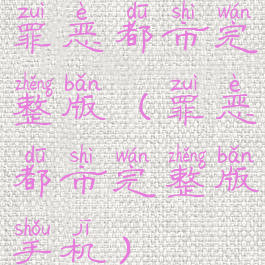 zuì è dū shì wán
罪恶都市完
zhěng bǎn zuì è
整版(罪恶
dū shì wán zhěng bǎn
都市完整版
shǒu jī
手机)